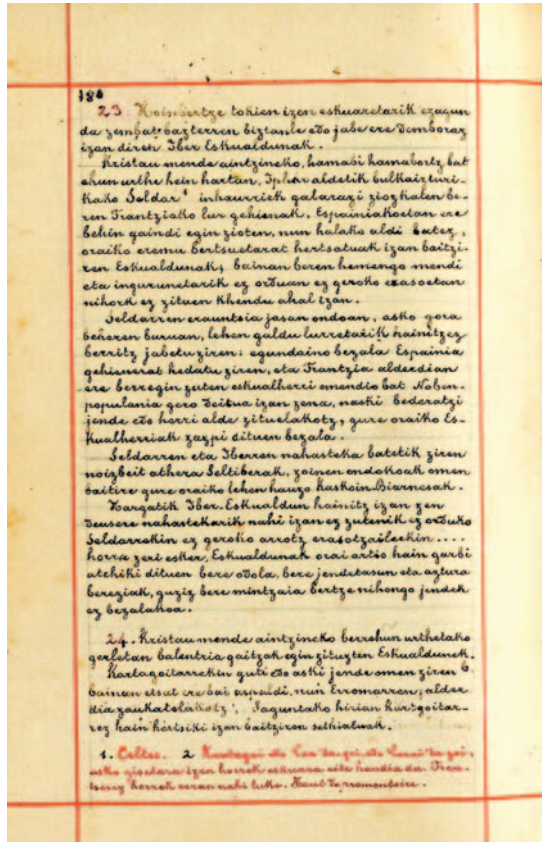 180
23. Hoinbertze tokien izen eskuaretarik ezagun
da zembat bazterren biztanle edo jabe ere demboraz
izan diren Iber Eskualdunak.
Kristau mende aintzineko, hamabi hamabortz bat
ehun urthe hein hartan, Iphar aldetik bulkaizturi-
kako Seldar¹ inhaurriek galarazi ziozkaten be-
ren Frantziako lur gehienak, Espainiakoetan ere
behin gaindi egin zioten, nun halako aldi batez,
oraiko eremu bertsuetarat hertsatuak izan baitzi-
ren Eskualdunak; bainan beren hemengo mendi
eta ingurunetarik ez orduan ez geroko erasoetan
nihork ez zituen khendu ahal izan.
Seldarren erauntsia jasan ondoan, asko gora
beheren buruan, lehen galdu lurretarik hainitzez
berritz jabetu ziren: egundaino bezala Espainia
gehienerat hedatu ziren, eta Frantzia alderdian
ere berregin zuten eskualherri emendio bat Noben-
populania gero deitua izan zena, naski bederatzi
jende edo herri alde zituelakotz, gure oraiko Es-
kualherriak zazpi dituen bezala.
Seldarren eta Iberren nahasteka batetik ziren
noizbeit athera Seltiberak, zoinen ondokoak omen
baitire gure oraiko lehen hauzo Kaskoin Biarnesak.
Hargatik Iber-Eskualdun hainitz izan zen
deusere nahastekarik nahi izan ez zutenik ez orduko
Seldarrekin ez geroko arrotz erasotzaileekin....
horra zeri esker, Eskualdunak orai artio hain garbi
atchiki dituen bere odola, bere jendetasun eta aztura
bereziak, guziz bere mintzaia bertze nihongo jendek
ez bezalakoa.
24. Kristau mende aintzineko berrehun urthetako
gerletan balentria gaitzak egin zituzten Eskualdunek.
Kartagoitarrekin guti edo aski jende omen ziren
bainan etsai ere bai aspaldi, nun Erromarren, alder-
dia zaukatelakotz, Saguntako hirian kartgoitar-
rez hain hertsiki izan baitziron sethiatuak.
1. Celtes. 2
asko gisetara izen horrek eskuara
horrek erran nahi luke. Haut